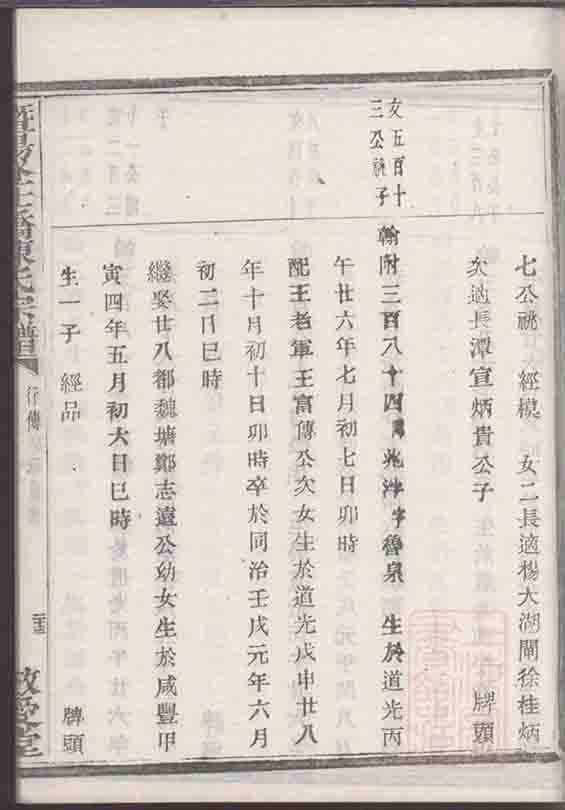 七公祧 經模 女二長適楊大湖閘徐桂炳
次適長潭宣炳貴公子 牌頭
文五百十
三公祧子
翰附三百八十四 兆沣字魯泉 生於道光丙
午廿六年七月初七日卯時
配王老軍王富傳公次女生於道光戊申廿八
年十月初十日卯時卒於同治壬戌元年六月
初二日巳時
繼娶廿八都魏塘鄭志遠公幼女生於咸豐甲
寅四年五月初六日巳時
生一子 經品 牌頭
陳氏宗譜
行傳
敬愛堂